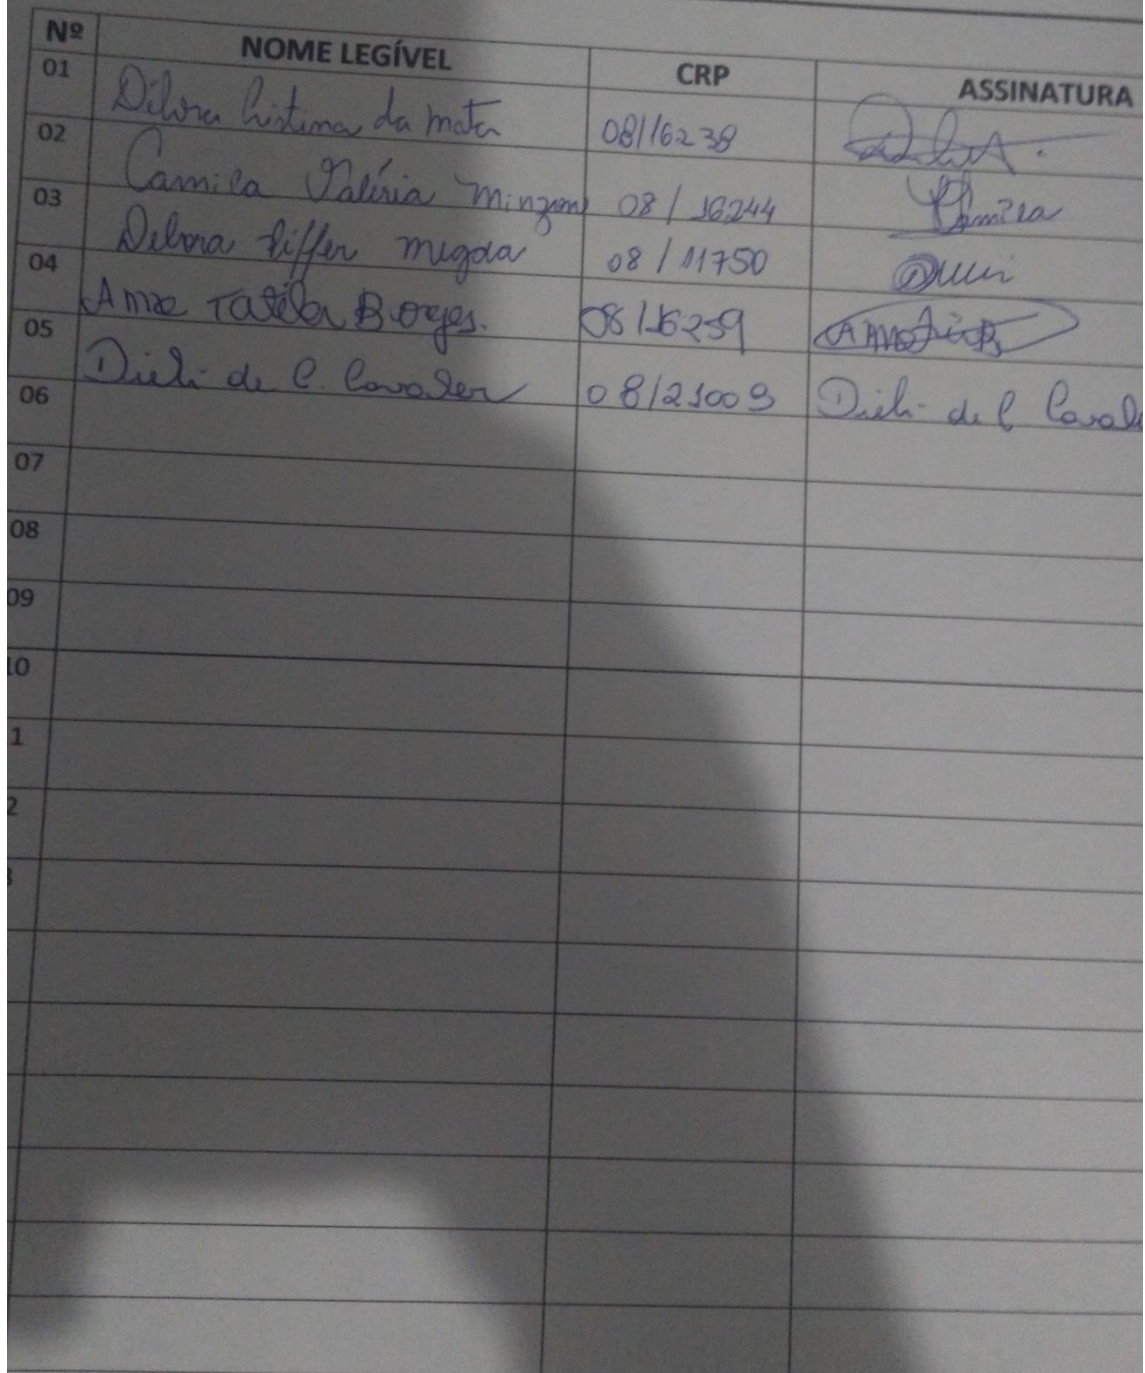 Nº NOME LEGÍVEL CRP ASSINATURA
01 Débora Cristina da Mata 08/16238
02 Camila Valéria Minzon 08/16244 Camila
03 Debora Migda 08/11750
04 Anne Borges. 08/16259
05 Dieli de C. Cavaler 08/21009 Dieli de C Caval
06
07
08
09
10
1
2
3